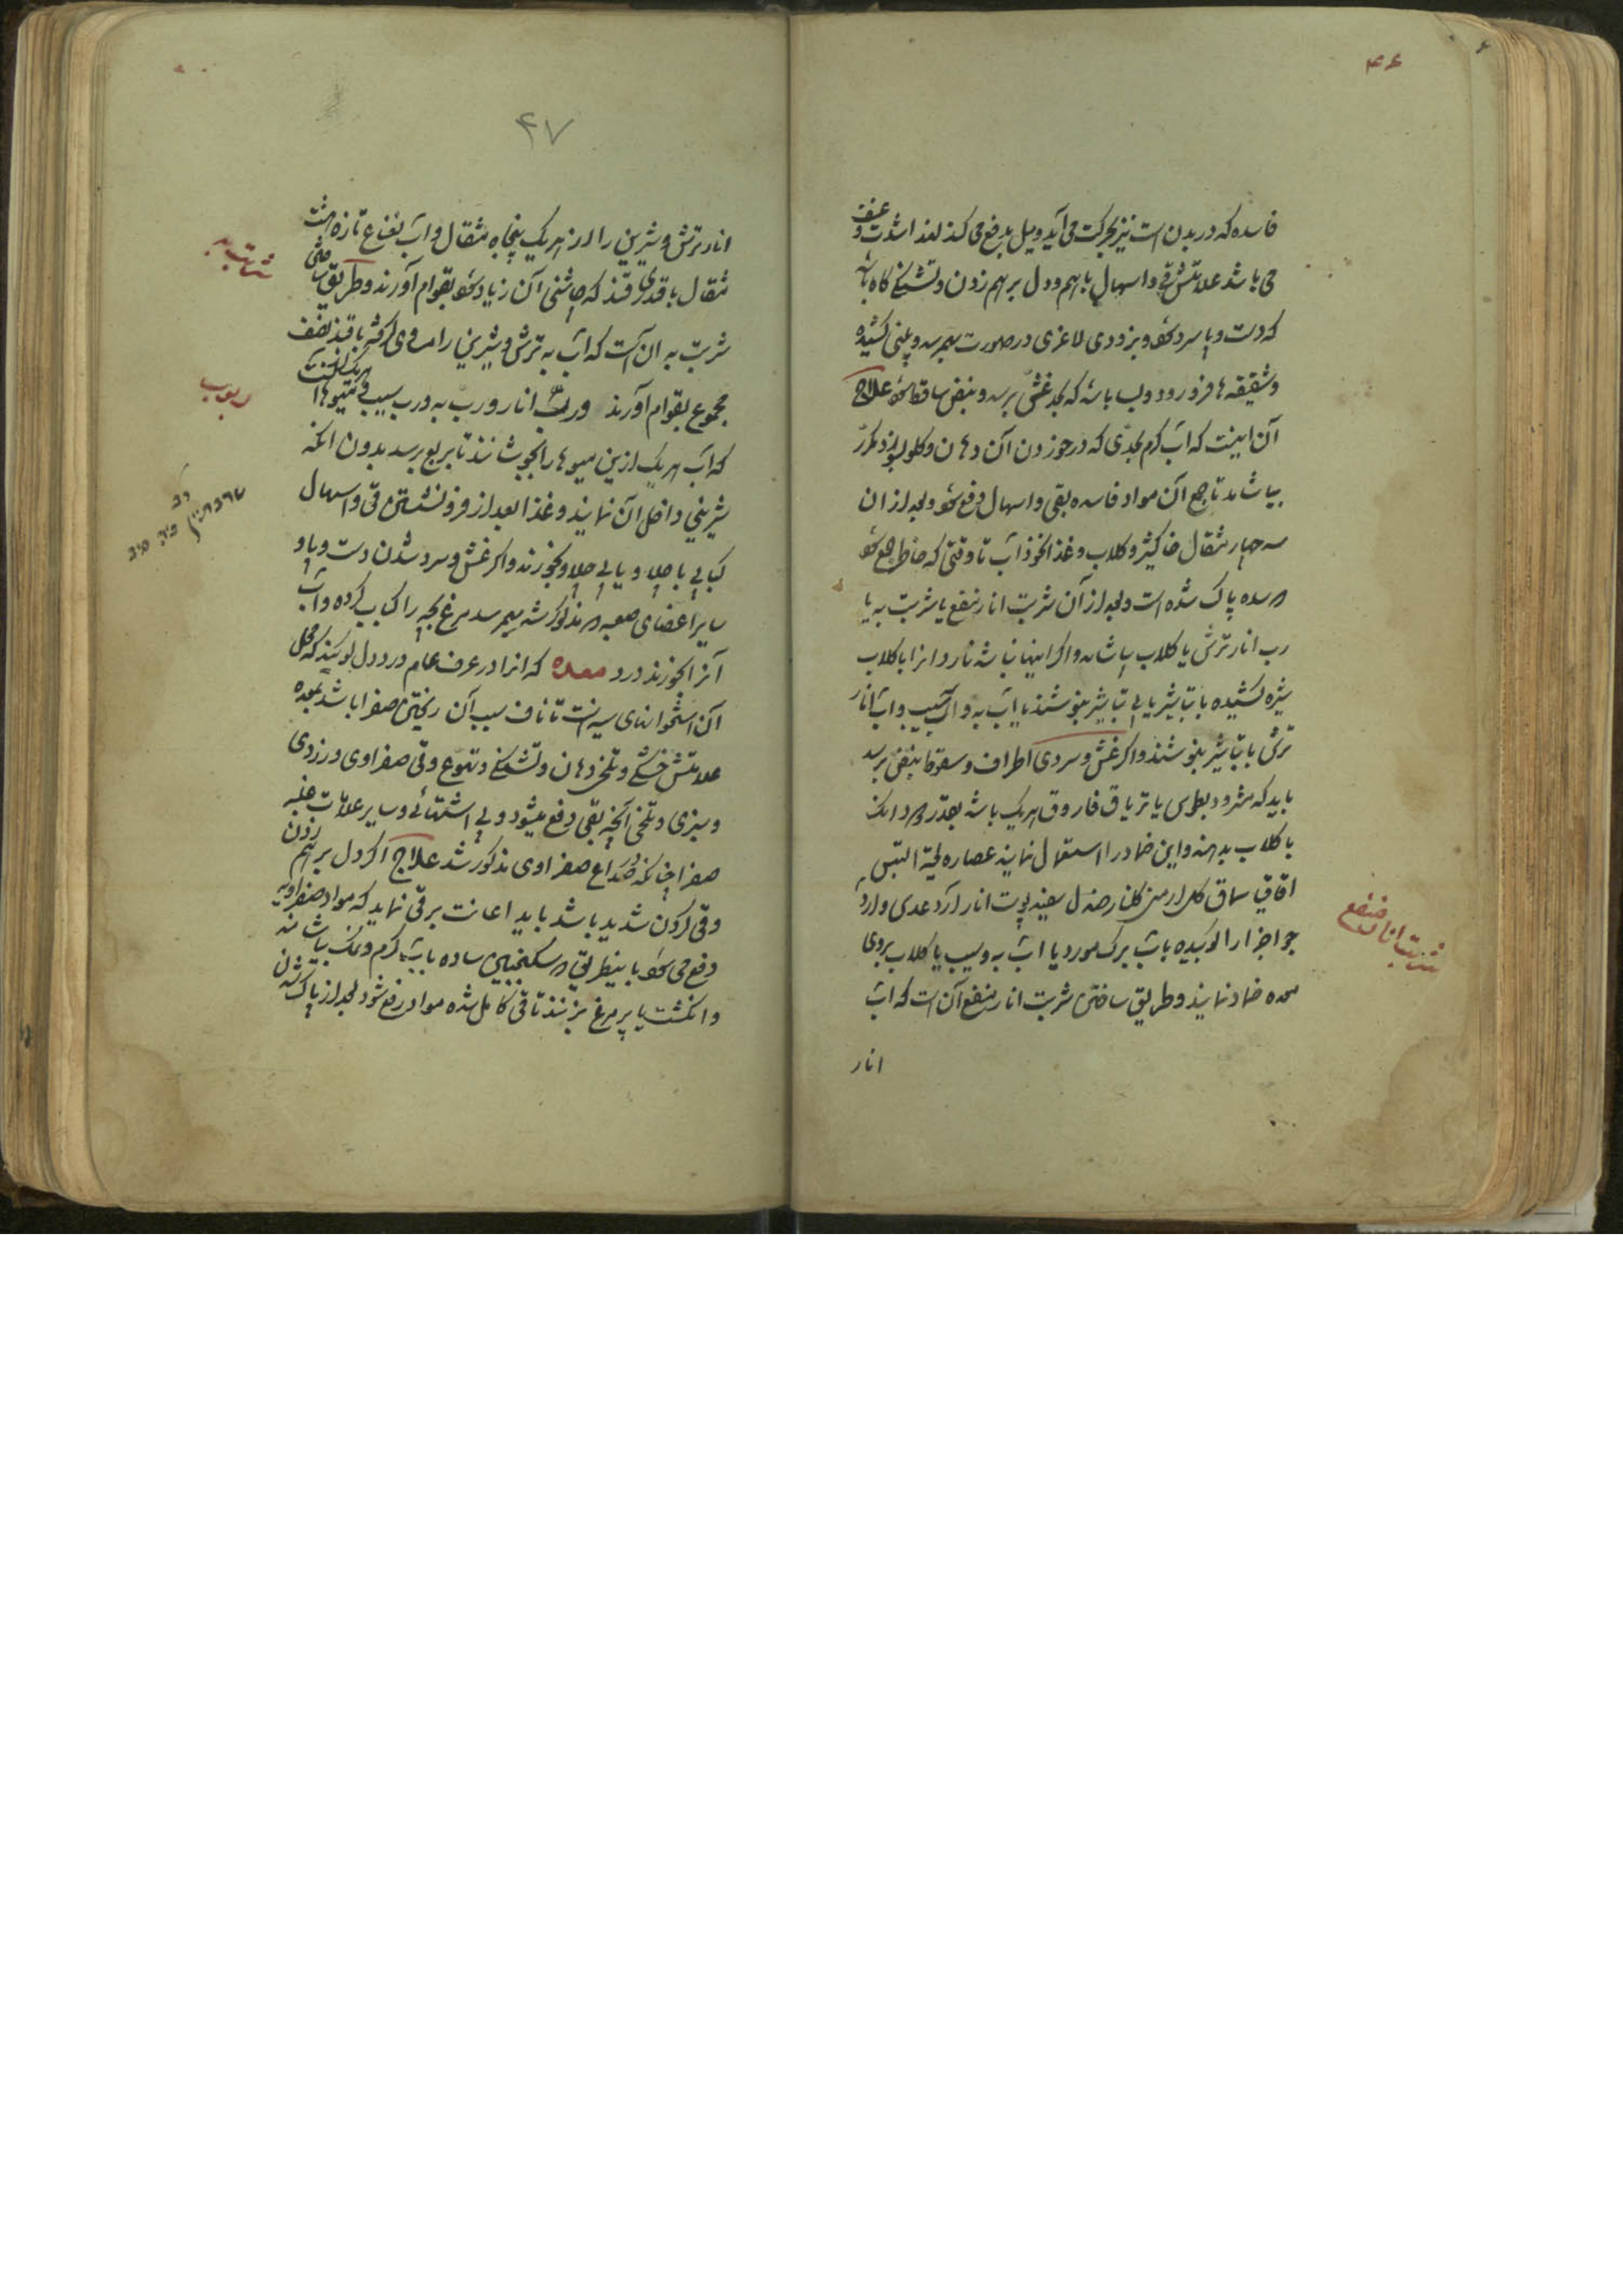 ۴۶
فاسده که در بدن است نیز بحرکت می آید و میل بدفع می کند لهذا شدت و عنف
می باشد علامتش قی و اسهال با هم و دل بر هم زدن و تشنگی گاه باشد
که دست و پا سرد شود و بزودی لاغری در صورت بهمرسد و بینی کشیده
و شقیقه ها فرو رود و بسا باشد که بحد غشی برسد و نبض ساقط شود علاج
آن اینست که آب گرم بحدی که در خوردن آن دهان و گلو نسوزد مکرر
بیاشامند تا جمیع آن مواد فاسده بقی و اسهال دفع شود و بعد از ان
سه چهار مثقال خاکشیر و گلاب و غذا نخورند تا وقتی که خاطر جمع شود
معده پاک شده است و بعد از آن شربت انار منعنع یا شربت به یا
رب انار ترش با گلاب بیاشامند و اگر اینها نباشد ناردانرا با گلاب
شیره کشیده با تباشیر یا بی تباشیر بنوشند یا آب به و آب سیب و آب انار
ترش با تباشیر بنوشند و اگر غش و سردی اطراف و سقوط نبض برسد
باید که مثرودیطوس یا تریاق فاروق هر یک باشد بقدر دو دانک
با گلاب بدهند و این ضماد را استعمال نمایند عصاره لحیة التیس
اقاقیا سماق گل ارمنی گلنار صندل سفید پوست انار آرد عدس و آرد
جو اجزا را کوبیده با آب برک مورد یا آب به و سیب یا گلاب بروی
معده ضماد نمایند و طریق ساختن شربت انار منعنع آن است که آب
انار
شربت انار منعنع
۴۷
انار ترش و شیرین را از هر یک پنجاه مثقال و آب نعناع تازه هشت
مثقال با قدری قند که چاشنی آن زیاد شود بقوام آورند و طریق ساختن
شربت به آن است که آب به ترش و شیرین را مساوی گرفته با قند نصف
مجموع بقوام آورند و رب انار و رب به و رب سیب و میوها آنست
که آب هر یک ازین میوها را بجوشانند تا بربع برسد بدون انکه
شیرینی داخل آن نمایند و غذا بعد از فرو نشستن قی و اسهال
کبابی با چلاو یا بی چلاو بخورند و اگر غش و سرد شدن دست و پا و
سایر اعضای صعبه مذکور شد بهمرسد مرغ بچه را کباب کرده و آب
آنرا بخورند درد معده که انرا در عرف عام درد دل گویند که محل
آن استخوانهای سینه است تا ناف سبب آن ریختن صفرا باشد بمعده
علامتش خشکی و تلخی دهان و تشنگی و تهوع و قی صفراوی و زردی
و سبزی و تلخی آنچه بقی دفع میشود و بی اشتهائی و سایر علامات غلبه
صفرا چنانکه در صداع صفراوی مذکور شد علاج اگر دل بر هم زدن
و قی کردن شدید باشد باید اعانت بر قی نماید که مواد صفراویه
دفع می شود باینطریق سکنجبین ساده با آب گرم و نمک بیاشامند
و انکشت یا پر مرغ بزنند تا قی کامل شده مواد رفع شود بعد از پاک شدن
شربت به
ربوب